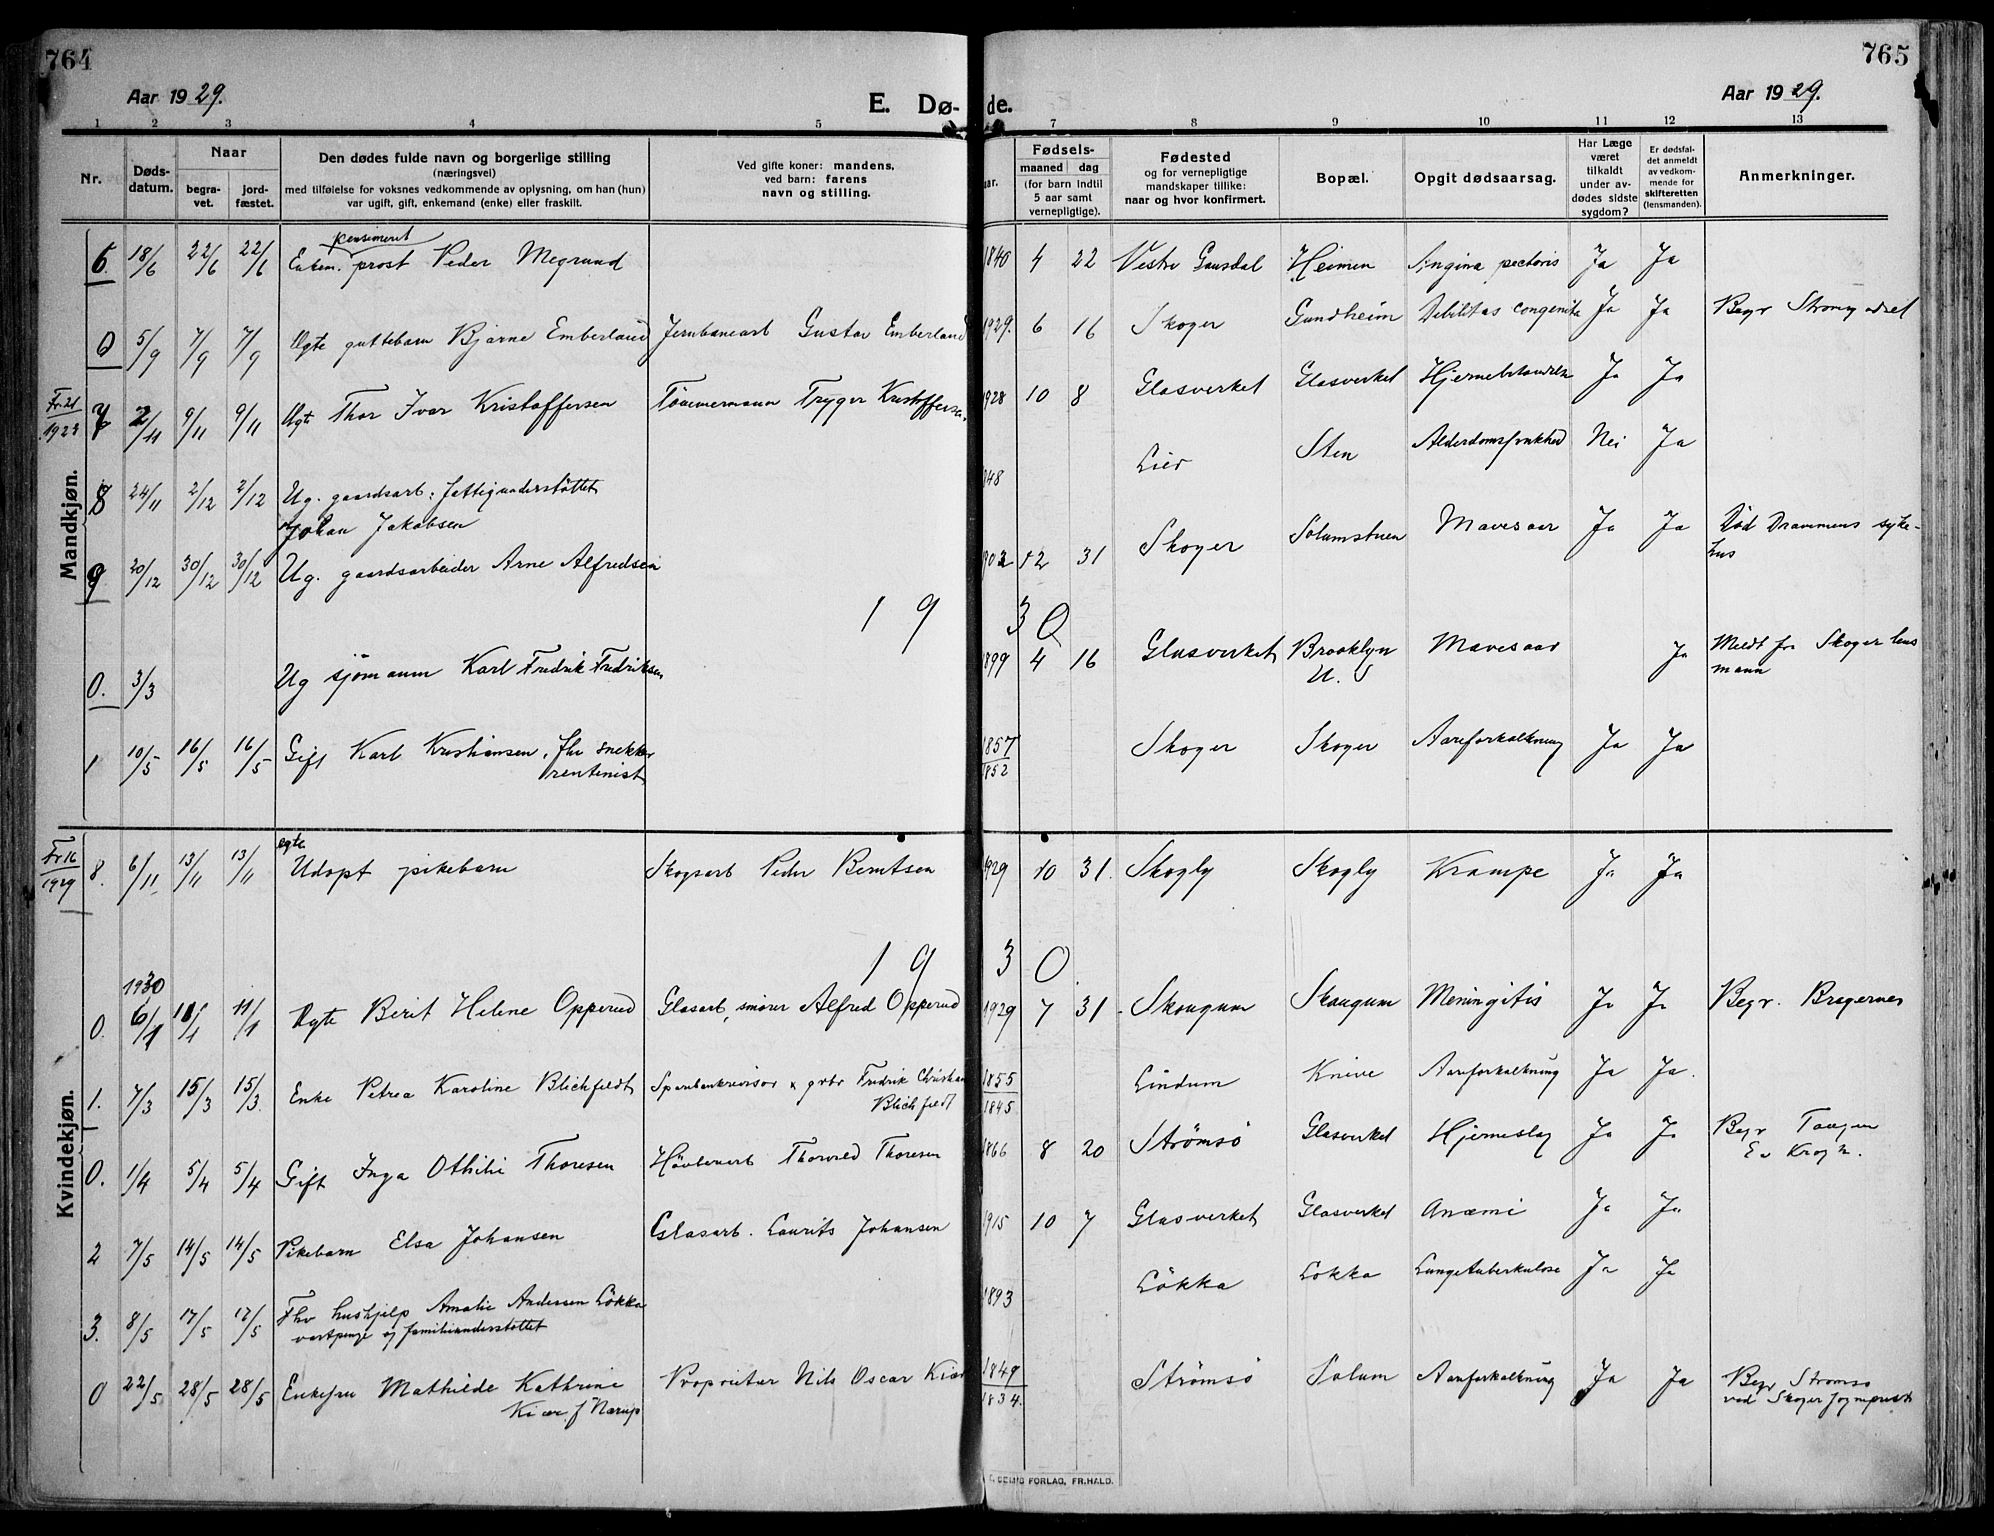 764
765
Aar 1929.
E. Dø- de.
Aar 1929.
1 2 3 4 5 7 8 9 10 11 12 13
Nr.
Døds-
datum.
Naar
begra-
vet.
jord-
fæstet.
Den dødes fulde navn og borgerlige stilling
(næringsvei)
med tilføielse for voksnes vedkommende av oplysning, om han (hun)
var ugift, gift, enkemand (enke) eller fraskilt.
Ved gifte koner: mandens,
ved barn: farens
navn og stilling.
aar.
Fødsels-
maaned dag
(for barn indtil
5 aar samt
vernepligtige).
Fødested
og for vernepligtige
mandskaper tillike:
naar og hvor konfirmert.
Bopæl.
Opgit dødsaarsag.
Har Læge
været
tilkaldt
under av-
dødes sidste
sygdom?
Er dødsfal-
det anmeldt
av vedkom-
mende for
skifteretten
(lensmanden).
Anmerkninger.
Mandkjøn.
pensioneret
6. 18/6 22/6 22/6 Enkem. prost Peder Megrund 1840 4 22 Vestre Gausdal Heimen Angina pectoris Ja Ja
0 5/9 7/9 7/9 Ægte guttebarn Bjarne Emberland Jernbanearb Gustav Emberland 1929. 6 16 Skoger Gundheim Debilitas congenita Ja Ja Begr
Fr 21
7 2/11 9/11 9/11 Ægte Thor Ivar Kristoffersen Tømmermann Trygve Kristoffersen 1928 10 8 Glasverket Glasverket Ja Ja
8 24/11 2/12 2/12 Ug. gaardsarb: fattigunderstøttet
Johan Jakobsen 848 Lier Sten Nei Ja
9 20/12 30/12 30/12 Ug. gaardsarbeider Arne Alfredsen 1902 12 31 Skoger Solumstuen Mavesaar Ja Ja Død Drammens syke-
hus
1930
0. 3/3 Ug sjømann Karl Fredrik Fredriksen 1899 4 16 Glasverket Brooklyn
U. S Mavesaar Ja Meldt fra Skoger lens
mann
1 10/5 16/5 16/5 Gift Karl Kristiansen. fhv snekker
rentenist 1857
1852 Skoger Skoger Aareforkalkning Ja Ja
Kvindekjøn.
Fr 16
1929
egte
8. 6/11 13/11 13/11 Udøpt pikebarn Skogsarb Peder Berntsen 1929 10 31. Skogly Skogly Krampe Ja Ja
1930
1930
0. 6/1 11/1 11/1 Ægte Berit Helene Opperud Glasarb, smører Alfred Opperud 1929 7 31 Skaugum Skaugum Meningitis Ja Ja Begr. Bragernes
1. 7/3 15/3 15/3. Enke Petrea Karoline Blichfeldt Sparebankrevisor x grbr Fredrik Christian
Blichfeldt 1855
1845 Lindum Knive Aareforkalkning Ja Ja.
0. 1/4 5/4 5/4 Gift Inga Othilie Thoresen Høvlerarb Thorvald Thoresen 1866 8 20 Strømsø Glasverket Hjerneslag Ja Ja Begr Tangen
Ev Krogh.
2 7/5 14/5 14/5 Pikebarn Elsa Johansen Glasarb. Laurits Johansen 1915 10 7 Glasverket Glasverket Anæmi Ja Ja
3. 8/5 17/5 17/5 Fhv hushjelp Amalie Andersen Løkka
og familieunderstøttet 1893 Løkka Løkka Lungetuberkulose Ja Ja
0 22/5 28/5 28/5 Enkefru Mathilde Kathrine
Kiær f Narup Proprietær Nils Oscar Kiær 1849
1834. Strømsø Solum Aareforkalkning Ja Ja Begr Strømsø
ved Skoger sogneprest
FORLAG, FR.HALD.